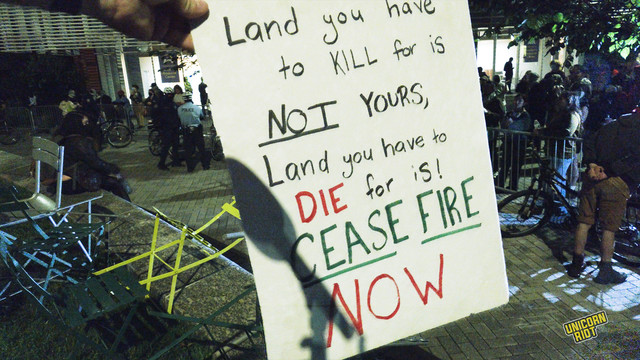 Land you have
to KILL for is
NOT YOURS,
Land you have to
DIE for is!
CEASE FIRE
NOW
UNICORN
RIOT